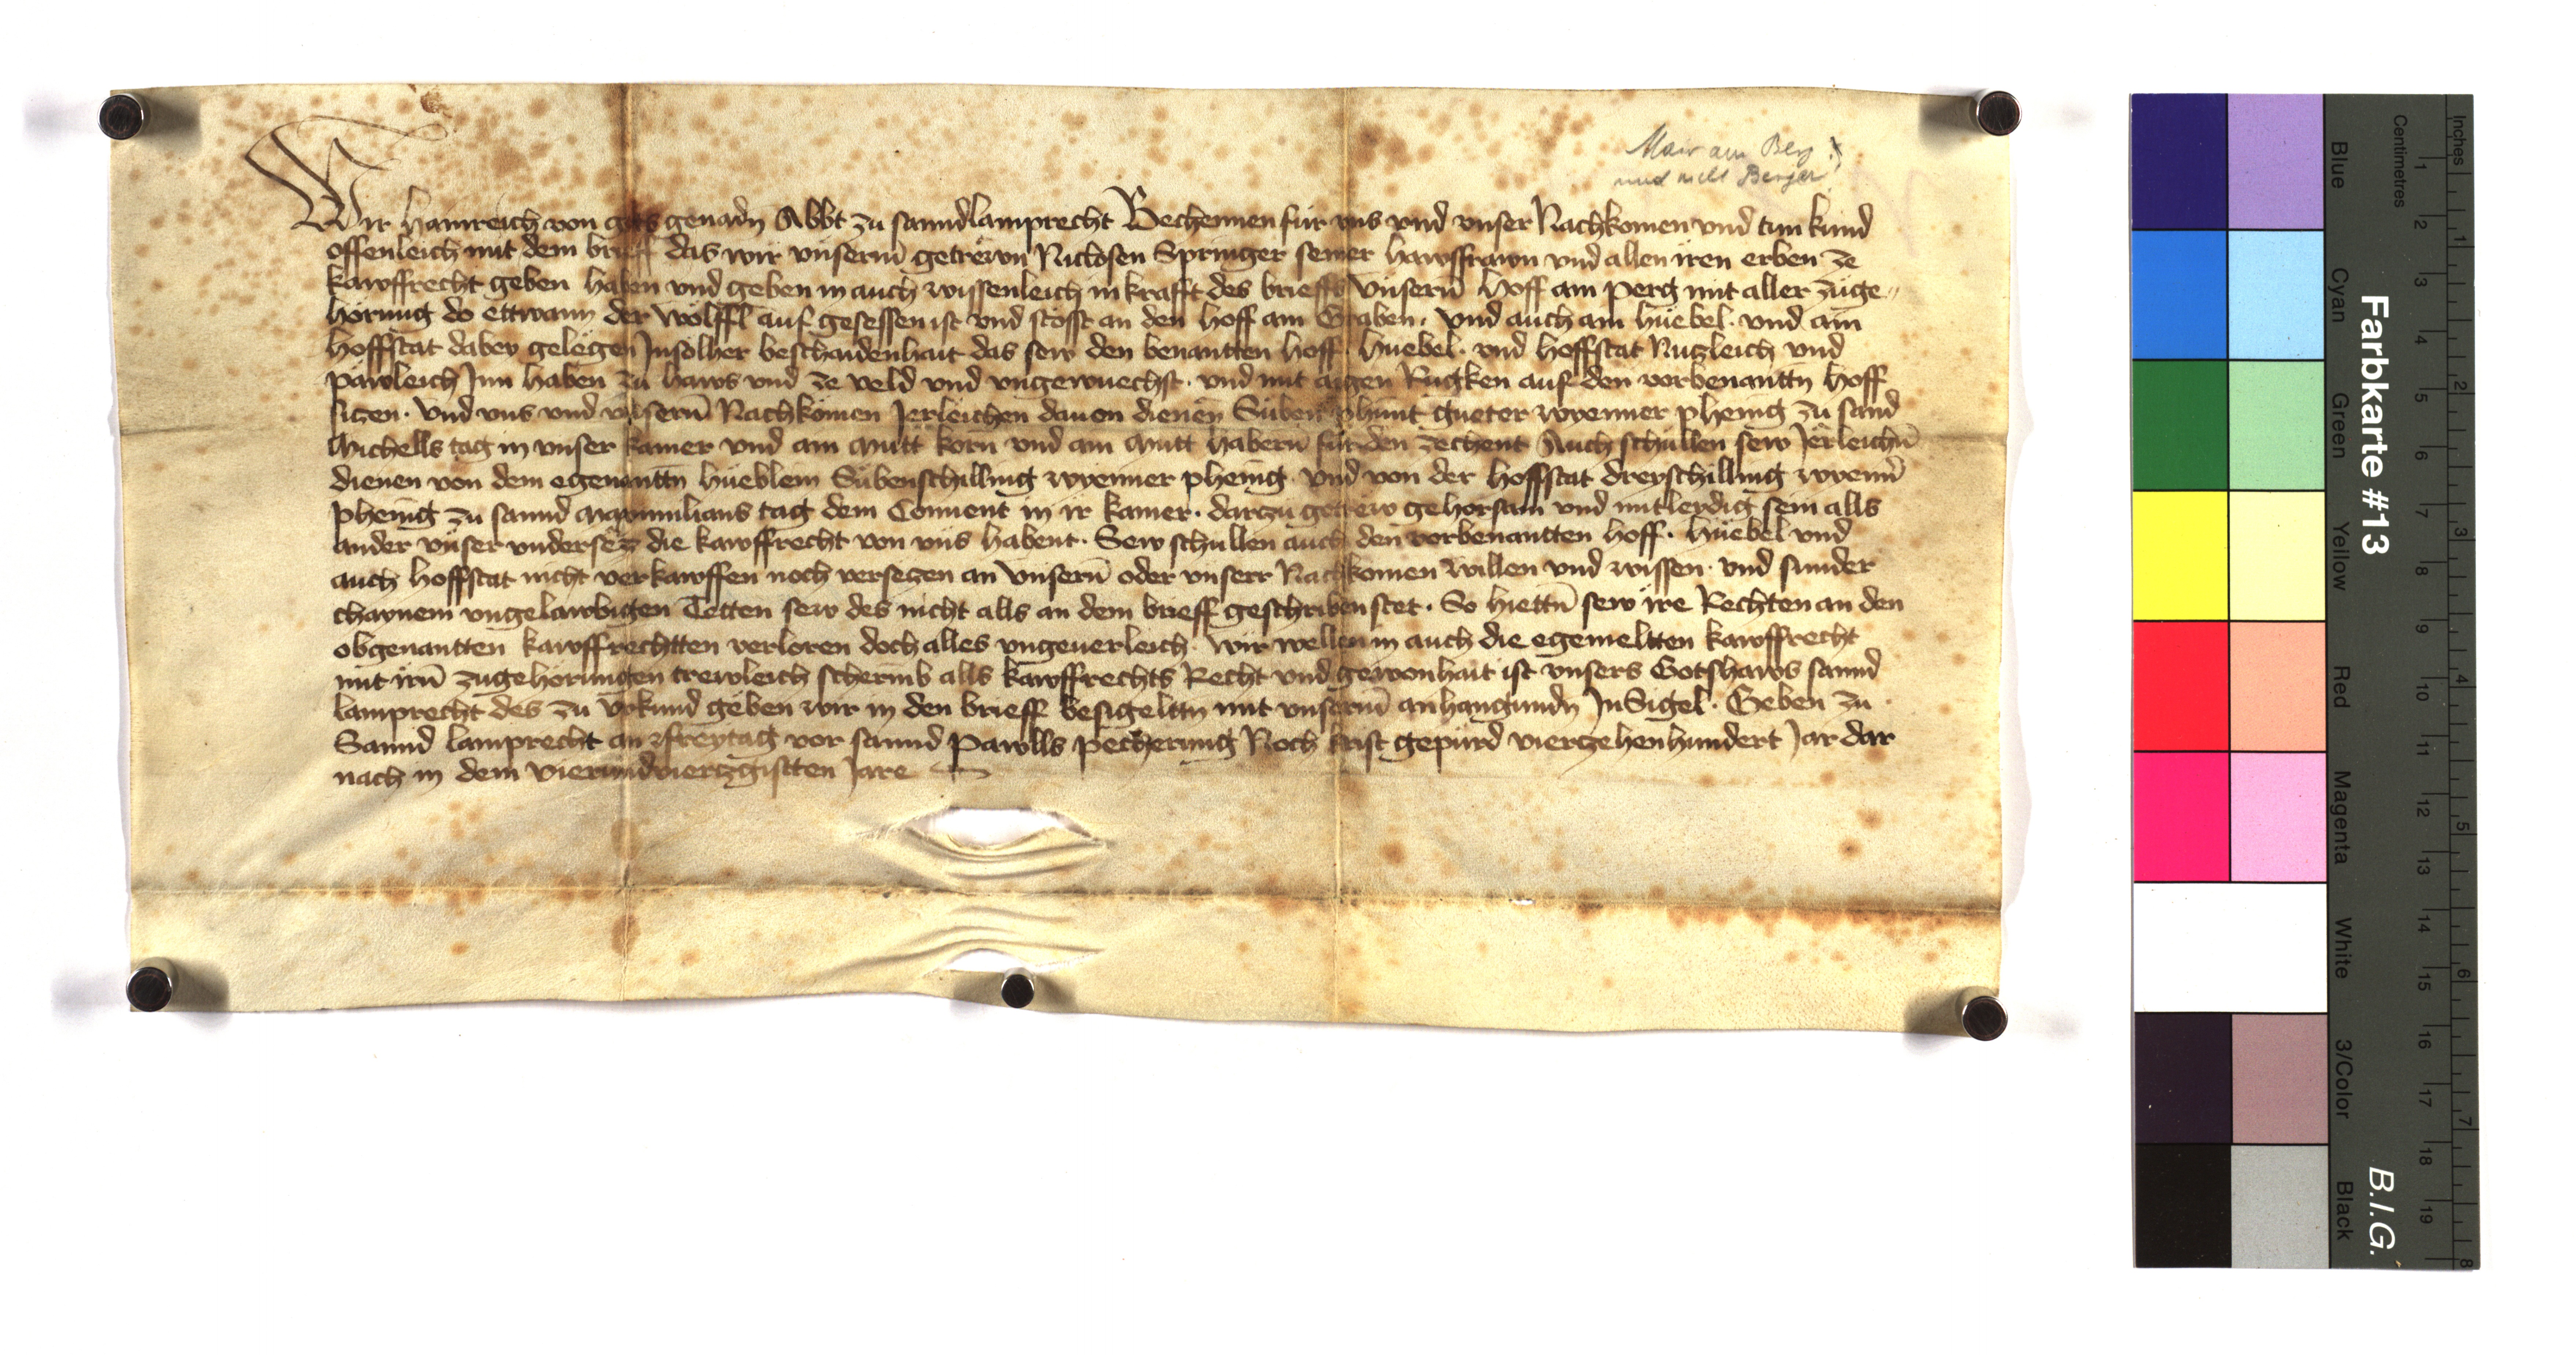 Mair am Berg!
und nicht Berger!
Wir hainreich von gots genadn Abbt zu sanndlamprecht Bechennen für vns vnd vnser Nachkomen vnd tun kund
offenleich mit dem brieff das wir vnserm getrewn Niclosen Springer seiner hawsfrawn vnd allen iren erben ze
kawffrecht geben haben vnd geben in auch wissenleich in krafft des brieffs Vnsern hoff am perg mit aller zuge„
hörung do ettwann der wölffl auf gesessen ist vnd stosst an den hoff am Graben. vnd auch ain hüebel. vnd ain
hoffstat dabey gelegen Insolher beschaidenhait das sew den benantten hoff. hüebel. vnd hoffstat Nuzleich vnd
pawleich Inn haben zu haws vnd ze veld vnd vngewuechst. vnd mit aigen Rugken auf den vorbenanttn hoff
sizen. vnd vns vnd vnsern Nachkömen Jerleichen dauon dienen Süben phunt gueter wyenner phening zu sand
Michells tag in vnser kamer vnd ain Mutt korn vnd ain Mutt habern für den zechent Auch schullen sew Jerleichn
dienen von dem egenanttn hüeblein Sübenschilling wyenner phening. vnd von der hoffstat dreyschilling wyenn
phening zu sannd Maximilians tag dem Conuent in ir kamer. darzu getrew gehorsam vnd mitleydig sein alls
ander vnser vndersez die kawffrecht von vns habent. Sew schullen auch den vorbenantten hoff. hüebel vnd
auch hoffstat nicht verkawffen noch versezen an vnsern oder vnserr Nachkomen willen vnd wissen. vnd sunder
chaynem vngelawbigen Tetten sew des nicht alls an dem brieff geschriben stet. So hiettn sew ire Rechten an den
obgenantten kawffrechtten verloren doch alles vngeuerleich. wir wellen in auch die egemeltten kawffrecht
mit irn zugehörungen trewleich schermb alls kawffrechts Recht vnd gewonhait ist vnsers Gotshaws sannd
lamprecht des zu vrkund geben wir in den brieff besigelttn mit vnserm anhangundn InSigel. Geben zu
Sannd lamprecht an freytag vor sannd pawlls pecherung Noch krist gepurd vierzehenhundert Jar dar
nach in dem vierundvierzgistten Jare
Farbkarte #13
B.I.G.
Inches
Centimetres
1 2 3 4 5 6 7 8 9 10 11 12 13 14 15 16 17 18 19
1 2 3 4 5 6 7 8
Blue
Cyan
Green
Yellow
Red
Magenta
White
3/Color
Black